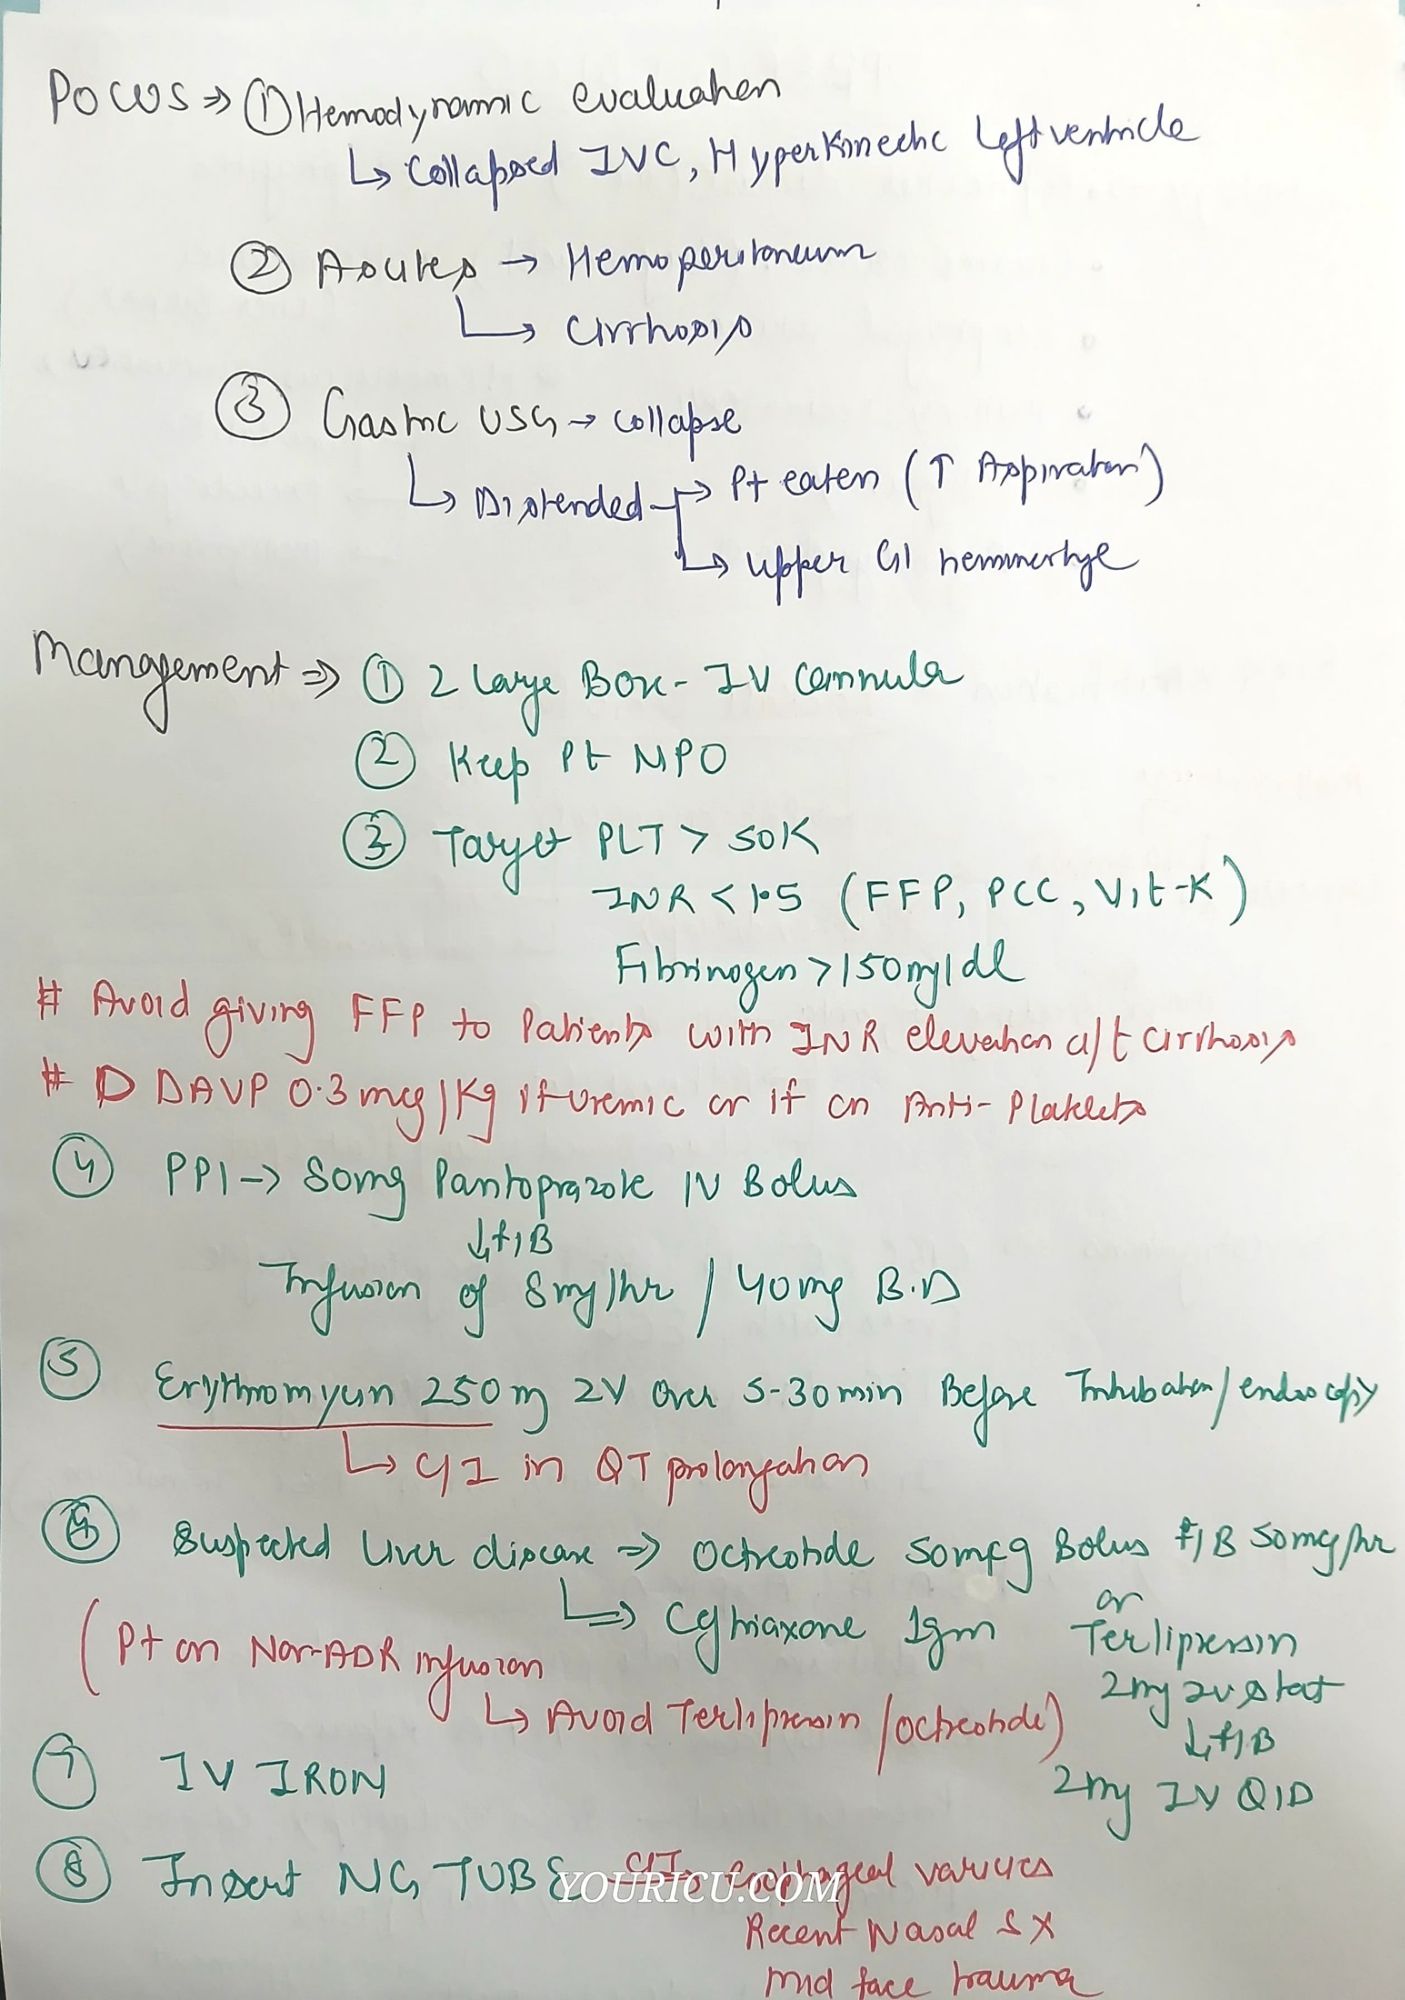 POCUS ⇒ ① Hemodynamic evaluation
↳ Collapsed IVC, Hyperkinectic Left ventricle
② Ascites → Hemoperitoneum
↳ Cirrhosis
③ Gastric USG → collapse
↳ Distended → Pt eaten (↑ Aspiration)
↳ upper GI
Management ⇒ ① 2 Large Bore - IV cannula
② Keep Pt NPO
③ Target PLT > 50K
INR < 1.5 (FFP, PCC, Vit-K)
Fibrinogen > 150mg/dl
# Avoid giving FFP to Patients with INR elevation d/t cirrhosis
# DDAVP 0.3 mcg/Kg if uremic or if on Anti-Platelets
④ PPI → 80mg Pantoprazole IV Bolus
↓ f/B
Infusion of 8mg/hr / 40mg B.D
⑤ Erythromycin 250mg IV over 5-30min Before Intubation/endoscopy
↳ C/I in QT prolongation
⑥ Suspected Liver disease ⇒ Octreotide 50mcg Bolus f/B 50mcg/hr
or
↳ Ceftriaxone 1gm Terlipressin
(Pt on Nor-ADR infusion 2mg IV stat
↳ Avoid Terlipressin/octreotide) ↓ f/B
⑦ IV IRON 2mg IV QID
⑧ Insert NG TUBE C/I → Esophageal varices
YOURICU.COM
Recent Nasal Sx
Mid face trauma